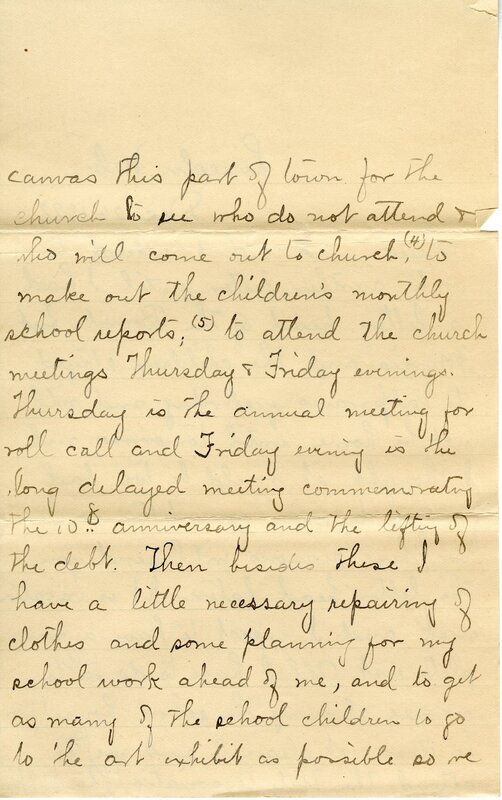 canvas this part of town for the
church to see who do not attend &
who will come out to church, (4) to
make out the children's monthly
school reports, (5) to attend the church
meetings Thursday & Friday evenings.
Thursday is the annual meeting for
roll call and Friday evening is the
long delayed meeting commemorating
the 10th anniversary and the lifting of
the debt. Then besides these I
have a little necessary repairing of
clothes and some planning for my
school work ahead of me, and to get
as many of the school children to go
to the art exhibit as possible so we